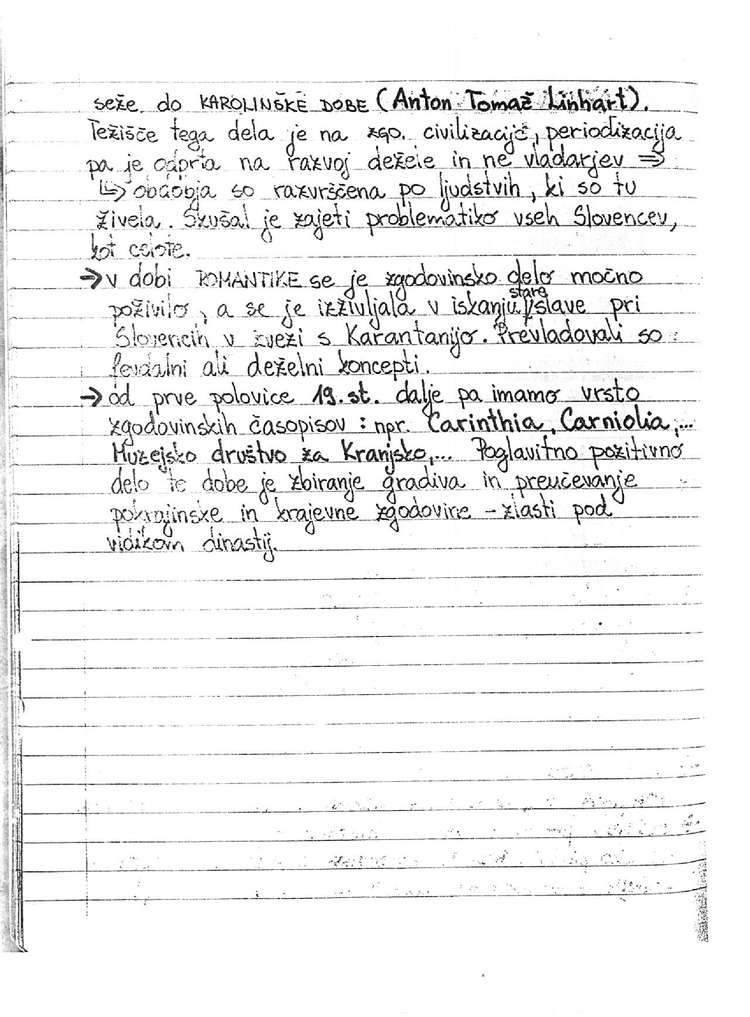 seže do KAROLINŠKE DOBE (Anton Tomaž Linhart).
Težišče tega dela je na zgo. civilizacije, periodizacija
pa je odprta na razvoj dežele in ne vladarjev ⇒
↳ obdobja so razvrščena po ljudstvih, ki so tu
živela. Skušal je zajeti problematiko vseh Slovencev,
kot celote.
→ v dobi ROMANTIKE se je zgodovinsko delo močno
poživilo, a se je izživljala v iskanju stare slave pri
Slovencih v zvezi s Karantanijo. Prevladovali so
fevdalni ali deželni koncepti.
→ od prve polovice 19. st. dalje pa imamo vrsto
zgodovinskih časopisov : npr. Carinthia, Carniolia,...
Muzejsko društvo za Kranjsko,... Poglavitno pozitivno
delo te dobe je zbiranje gradiva in preučevanje
pokrajinske in krajevne zgodovine - zlasti pod
vidikom dinastij.